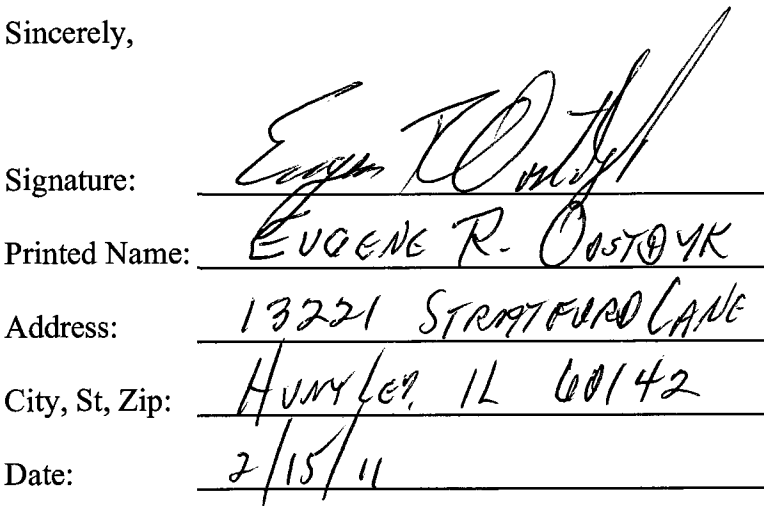 Sincerely,
Signature: Eugene R Oostdyk
Printed Name: EUGENE R. OOSTDYK
Address: 13221 STRATFORD LANE
City, St, Zip: HUNTLEY, IL 60142
Date: 2/15/11